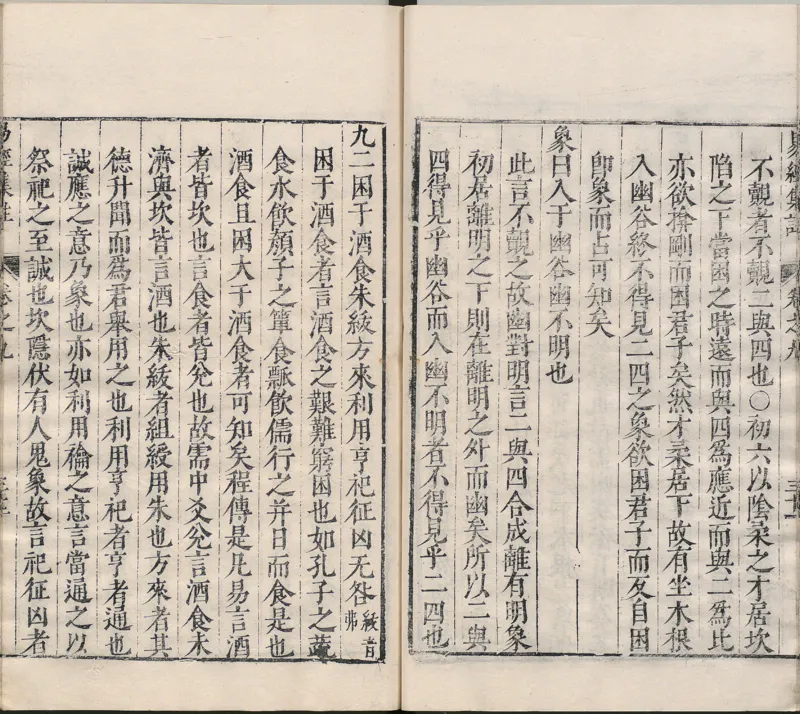 易經集註
卷之九
三十一
不覿者不覿二與四也○初六以陰柔之才居坎
陷之下當困之時遠而與四爲應近而與二爲比
亦欲揜剛而困君子矣然才柔居下故有坐木根
入幽谷終不得見二四之象欲困君子而反自困
卽象而占可知矣
象曰入于幽谷幽不明也
此言不覿之故幽對明言二與四合成離有明象
初居離明之下則在離明之外而幽矣所以二與
四得見乎幽谷而入幽不明者不得見乎二四也
九二困于酒食朱紱方來利用亨祀征凶无咎紱音弗
困于酒食者言酒食之艱難窮困也如孔子之蔬
食水飲顏子之簞食瓢飲儒行之并日而食是也
酒食且困大于酒食者可知矣程傳是凡易言酒
者皆坎也言食者皆兌也故需中爻兌言酒食未
濟與坎皆言酒也朱紱者組綬用朱也方來者其
德升聞而爲君舉用之也利用亨祀者亨者通也
誠應之意乃象也亦如利用禴之意言當通之以
祭祀之至誠也坎隱伏有人鬼象故言祀征凶者
易經集註
卷之九